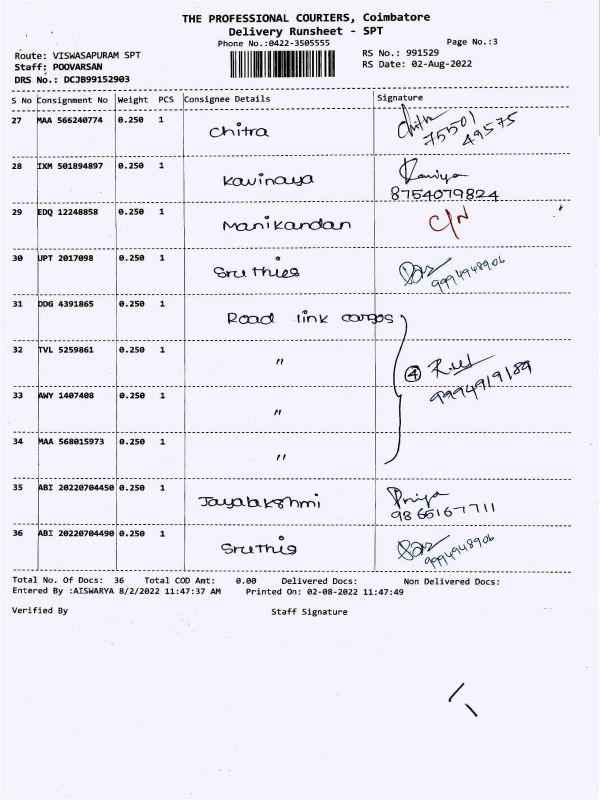 THE PROFESSIONAL COURIERS, Coimbatore
Delivery Runsheet - SPT
Phone No.:0422-3505555
Page No.:3
Route: VISWASAPURAM SPT
RS No.: 991529
Staff: POOVARSAN
RS Date: 02-Aug-2022
DRS No.: DCJB99152903
S No Consignment No Weight PCS Consignee Details Signature
27 MAA 566240774 0.250 1 Chitra
75501
49575
28 IXM 501894897 0.250 1 Kavinaya
8754079824
29 EDQ 12248858 0.250 1 Manikandan C/N
30 UPT 2017098 0.250 1 Sruthies
9994948906
31 DDG 4391865 0.250 1 Road link cargos
32 TVL 5259861 0.250 1 "
4
9994919189
33 AWY 1407408 0.250 1 "
34 MAA 568015973 0.250 1 "
35 ABI 20220704450 0.250 1 Jayalakshmi Priya
9865167711
36 ABI 20220704490 0.250 1 Sruthis
9994948906
Total No. Of Docs: 36 Total COD Amt: 0.00 Delivered Docs: Non Delivered Docs:
Entered By :AISWARYA 8/2/2022 11:47:37 AM Printed On: 02-08-2022 11:47:49
Verified By Staff Signature